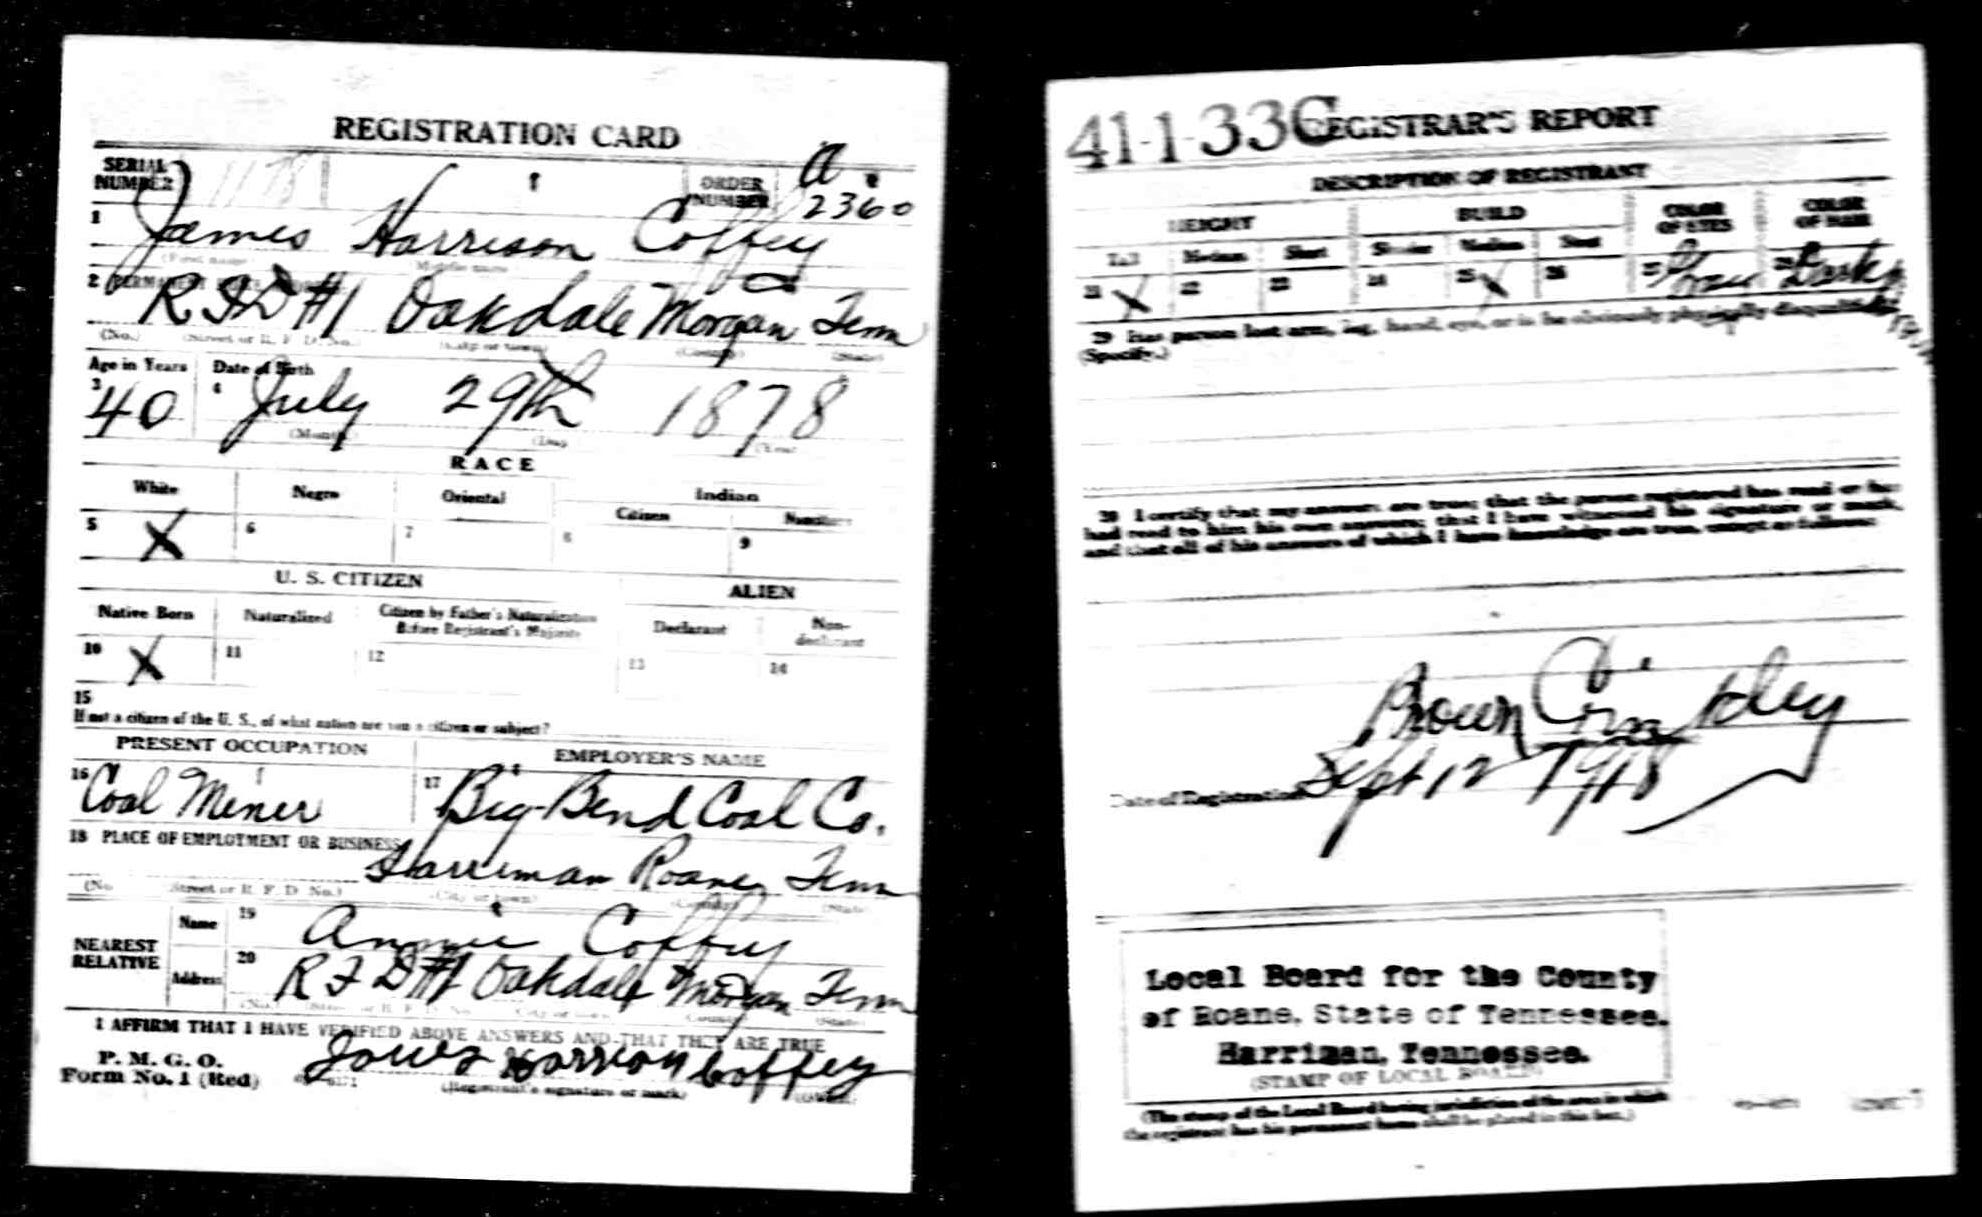 REGISTRATION CARD
SERIAL NUMBER ORDER NUMBER A 2360
1 James Harrison Coffey
(First name) (Middle name)
2 PERMANENT
R F D #1 Oakdale Morgan Tenn
(No.) (Street or R. F. D. No.) (City or town) (County) (State)
Age in Years Date of Birth
3 40 4 July 29th 1878
(Month) (Day) (Year)
RACE
White Negro Oriental Indian
Citizen Noncitizen
5 X 6 7 8 9
U. S. CITIZEN ALIEN
Native Born Naturalized Citizen by Father's Naturalization Before Registrant's Majority Declarant Non-declarant
10 X 11 12 13 14
15
If not a citizen of the U. S., of what nation are you a citizen or subject?
PRESENT OCCUPATION EMPLOYER'S NAME
16 Coal Miner 17 Big-Bend Coal Co.
18 PLACE OF EMPLOYMENT OR BUSINESS
Harriman Roane Tenn
(No. Street or R. F. D. No.) (City or town) (County) (State)
NEAREST RELATIVE
Name 19 Annie Coffey
Address 20 R F D #1 Oakdale Morgan Tenn
(No.) (Street or R. F. D. No.) (City or town) (County) (State)
I AFFIRM THAT I HAVE VERIFIED ABOVE ANSWERS AND THAT THEY ARE TRUE
P. M. G. O.
Form No. 1 (Red) James Harrison Coffey
(Registrant's signature or mark) (OVER)
41-1-33 C REGISTRAR'S REPORT
DESCRIPTION OF REGISTRANT
HEIGHT BUILD COLOR OF EYES COLOR OF HAIR
Tall Medium Short Slender Medium Stout
21 X 22 23 24 25 X 26 27 28 Dark
29 Has person lost arm, leg, hand, eye, or is he obviously physically disqualified?
(Specify.)
30 I certify that my answers are true; that the person registered has read or has
had read to him his own answers; that I have witnessed his signature or mark,
and that all of his answers of which I have knowledge are true, except as follows:
Brown
Date of Registration Sept 12 1918
Local Board for the County
of Roane, State of Tennessee.
Harriman, Tennessee.
(STAMP OF LOCAL BOARD)
(The stamp of the Local Board having jurisdiction of the area in which
the registrant has his permanent home shall be placed in this box.)